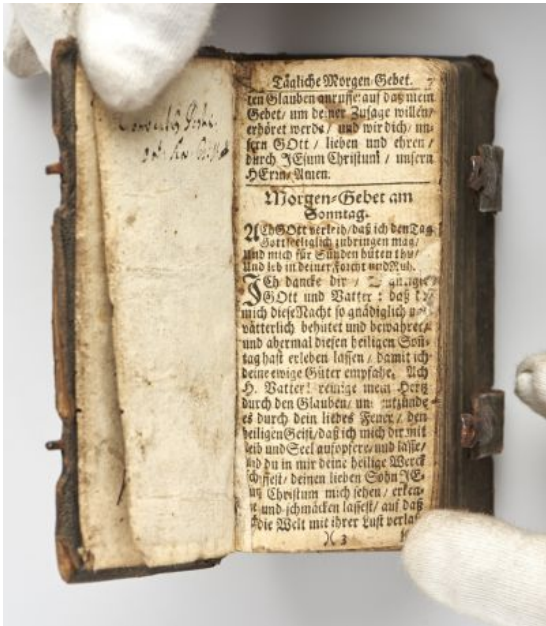 Tägliche Morgen-Gebet. 7
ten Glauben anruffe: auf daß mein
Gebet/ um deiner Zusage willen/
erhöret werde / und wir dich/ un-
sern GOtt / lieben und ehren /
durch JEsum Christum / unsern
HErrn/ Amen.
Morgen-Gebet am
Sonntag.
ACh GOtt verleih/ daß ich den Tag
Gottseeliglich zubringen mag/
und mich für Sünden hüten thu/
Und leb in deiner Forcht und Ruh.
JCh dancke dir /
GOtt und Vatter : daß
mich diese Nacht so gnädiglich
vätterlich behütet und bewahret/
und abermal diesen heiligen Sonn-
tag hast erleben lassen / damit ich
deine ewige Güter empfahe. Ach
H. Vatter! reinige mein Hertz
durch den Glauben/
es durch dein liebes Feuer / den
heiligen Geist/ daß ich mich dir mit
Leib und Seel aufopfere/ und lasse/
du in mir deine heilige Werck
deinen lieben Sohn JE-
Christum mich sehen/ erken-
und schmäcken lassest/ auf daß
die Welt mit ihrer Lust
3